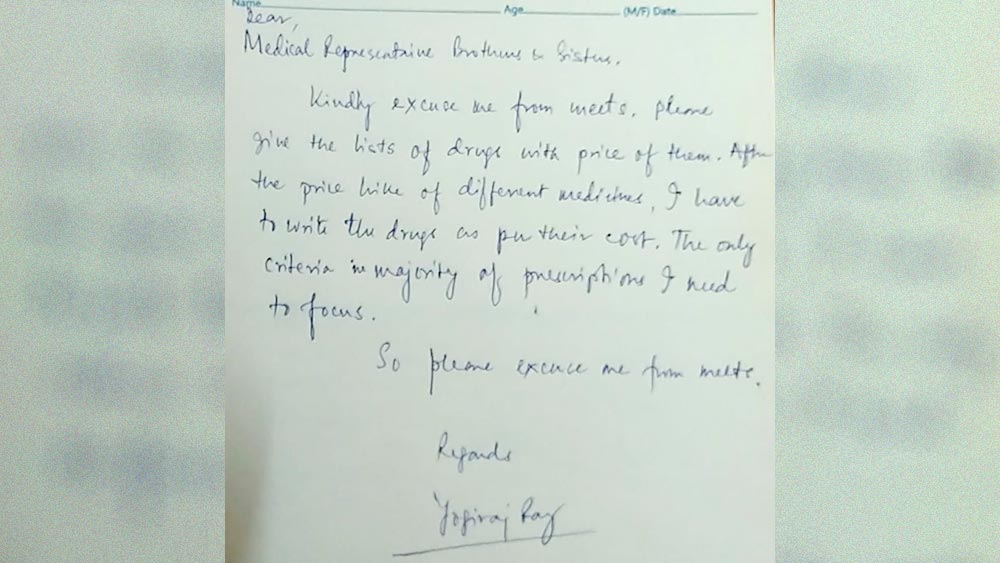 Name Age (M/F) Date
Dear,
Medical Representative Brothers & Sisters,
Kindly excuse me from meets. please
give the lists of drugs with price of them. After
the price hike of different medicines, I have
to write the drugs as per their cost. The only
criteria in majority of prescriptions I need
to focus.
So please excuse me from meets.
Regards
Yogiraj Ray